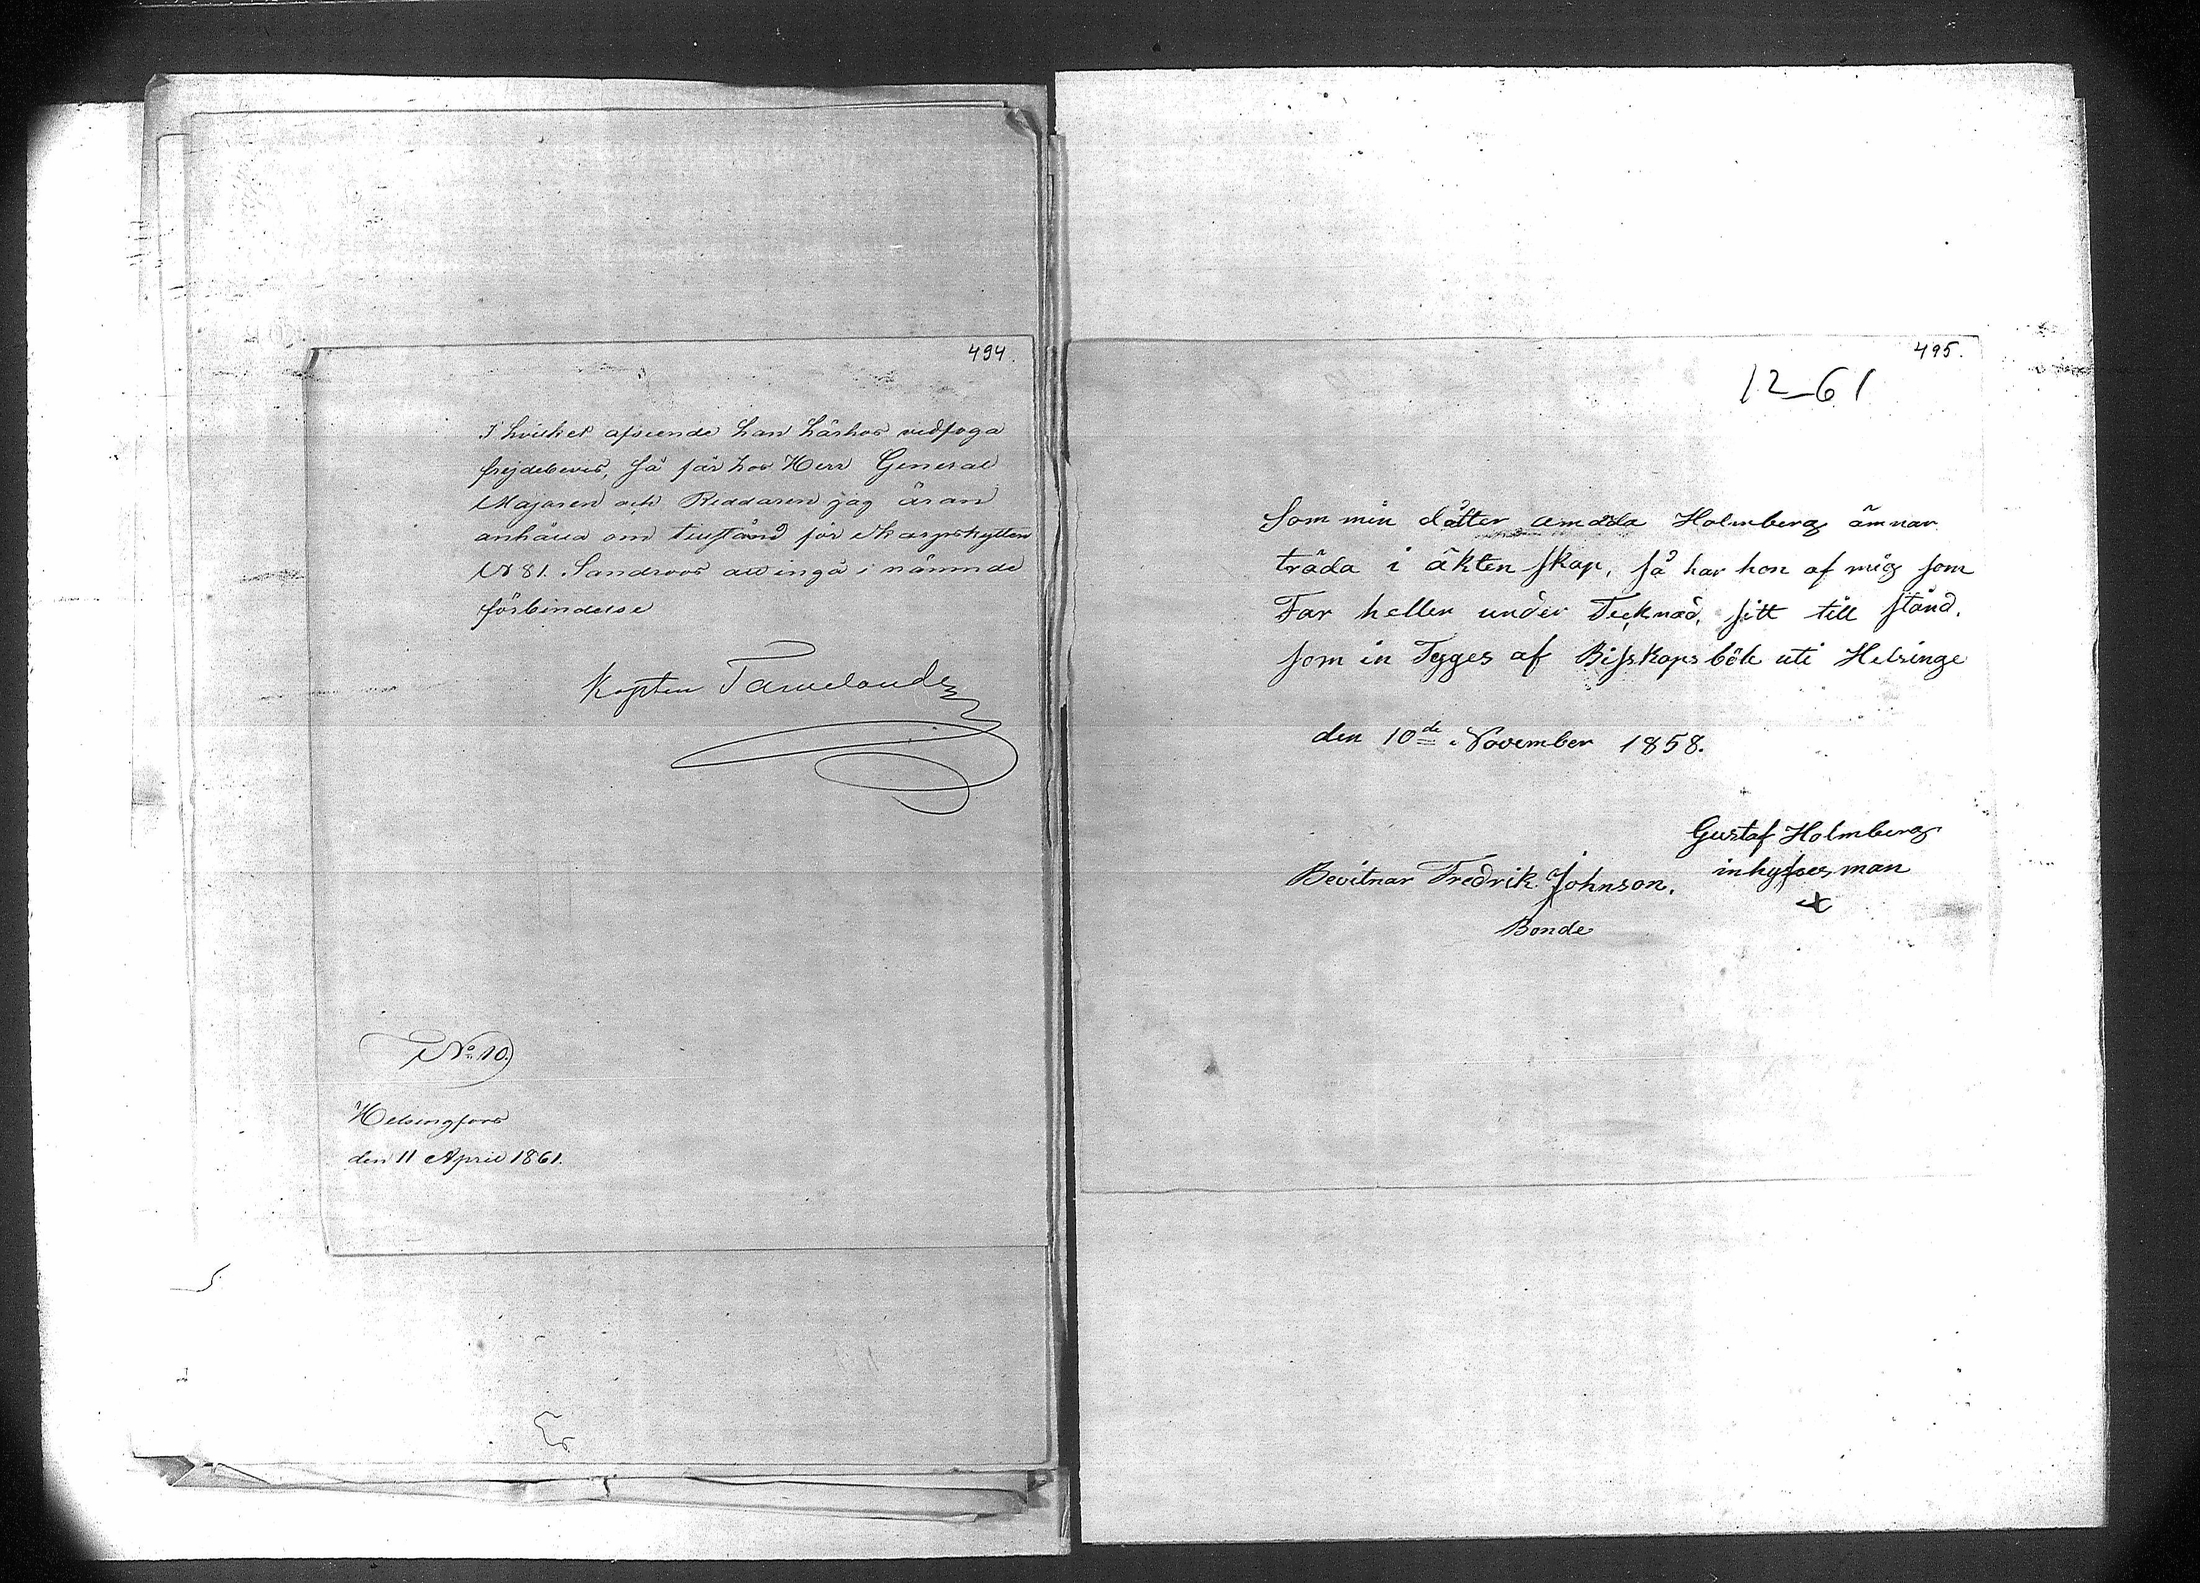 494.
I hvilket afseende han härhos vidfoga
frejdebevis, Så får hos Herr General
Majoren och Riddaren jag äran
anhålla om tillstånd för Skarpskytten
N 81. Sandroos att ingå i nämnde
förbindelse
Kapten
No 10.
Helsingfors
den 11 April 1861.
495.
12-61
Som min dåtter amalda Holmberg ämnar
träda i äkten skap, så har hon af mig som
Far heller under Tecknad, sitt till stånd.
som in Tygges af Bisskops böle uti Helsinge
den 10de November 1858.
Gustaf Holmberg
inhyses man
Bevitnar Fredrik Johnson.
Bonde